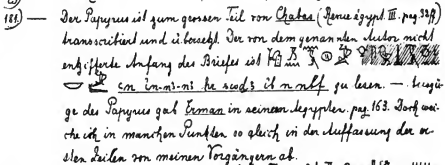 181.) — Der Papyrus ist zum grossen Teil von Chabas (Revue égypt. III. pag. 32ff)
transcribiert und übersetzt. Der von dem genannten Autor nicht
entzifferte Anfang des Briefes ist
zu lesen. —
ge des Papyrus gab Erman in seinem Aegypten. pag. 163. Doch wei-
che ich in manchen Punkten so gleich in der Auffassung der er-
sten Zeilen von meinen Vorgängern ab.